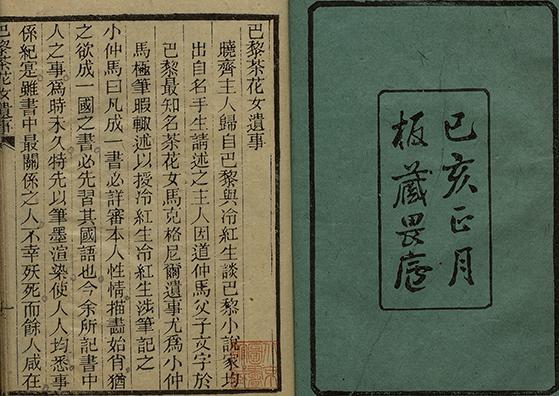 己亥正月
板藏畏廬
巴黎茶花女遺事
曉齋主人歸自巴黎與冷紅生談巴黎小說家均
出自名手生請述之主人因道仲馬父子文字於
巴黎最知名茶花女馬克格尼爾遺事尤為小仲
馬極筆暇輒述以授冷紅生冷紅生涉筆記之
小仲馬曰凡成一書必詳審本人性情描畫始肖猶
之欲成一國之書必先習其國語也今余所記書中
人之事為時未久特先以筆墨渲染使人人均悉事
係紀寔雖書中最關係之人不幸殀死而餘人咸在
巴黎茶花女遺事 一